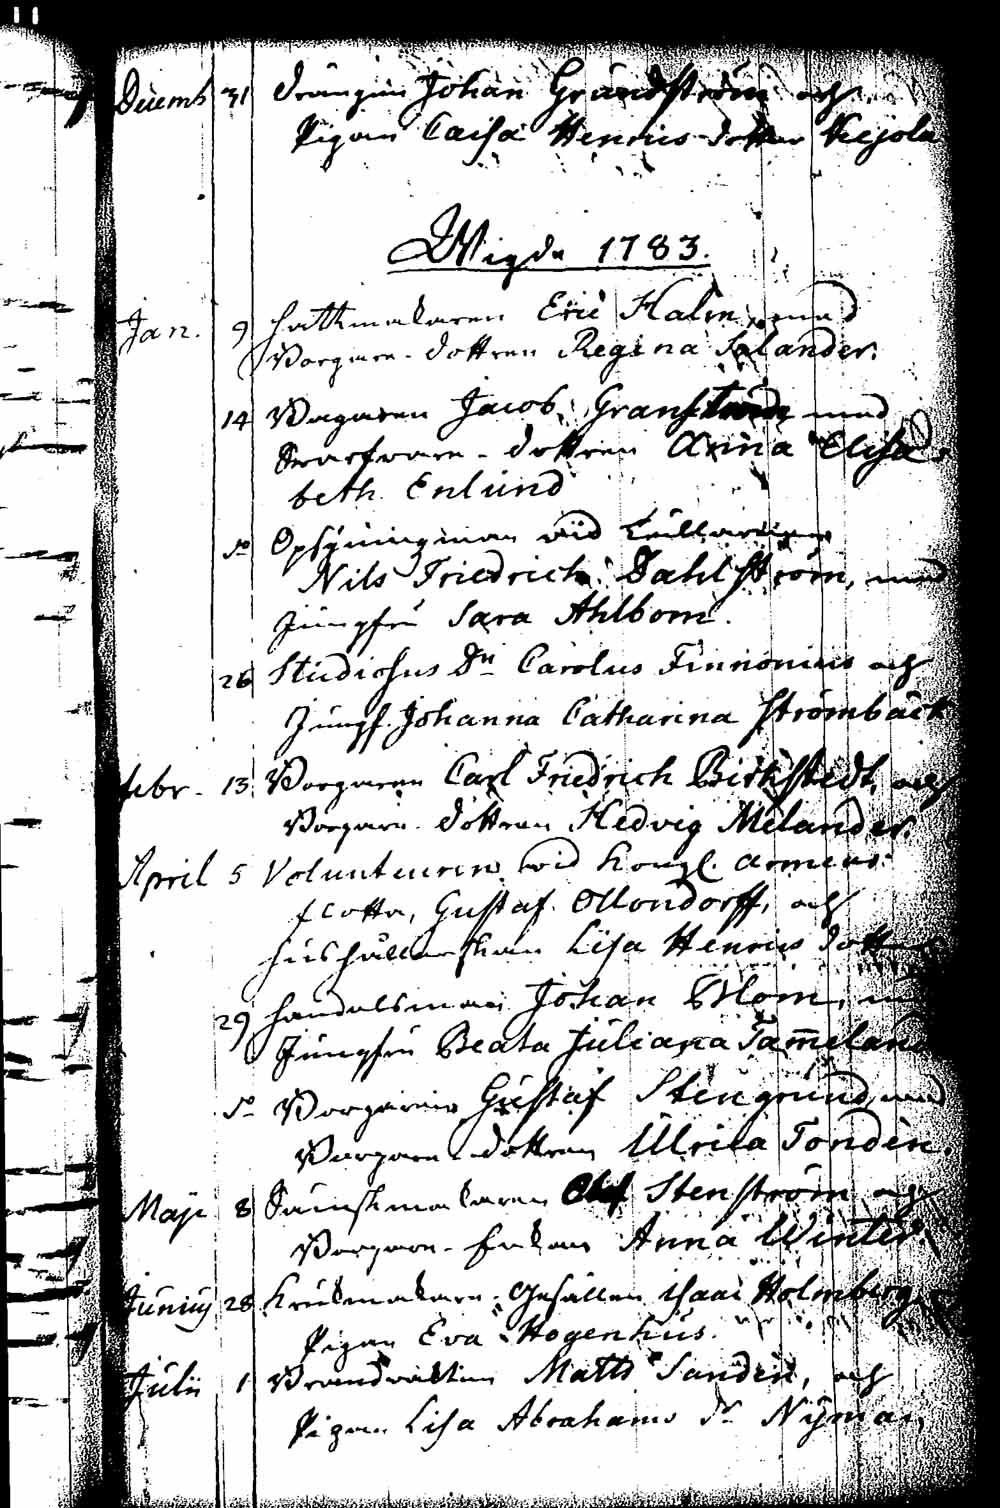 11
Decemb 31 Drängen Johan Grundström och
Pigan Caisa Henricsdotter Keijola
Wigde 1783.
Jan. 9 Hattmakaren Eric Halm, med
Borgare-dottren Regina Solander.
14 Bagaren Jacob med
Swarfvare-dottren Anna Elisa-
beth Enlund
do Opsyningsman vid
Nils Friedrich Dahlström, med
Jungfru Sara Ahlbom.
26 Studiosus Dn Carolus Finnonius och
Jungf. Johanna Catharina Strömbäck
Febr. 13 Borgaren Carl Friedrich Birkstedt, och
Borgare-dottren Hedvig Melander.
April 5 Volunteuren vid Kongl. Armeens
flotta, Gustaf Ollondorff, och
Hushållerskan Lisa Henricsdotter
29 Handelsman Johan Blom,
Jungfru Beata Juliana Tam̄elan
do Borgaren Gustaf Stengrund, med
Borgare-dottren Ulrica Tondén.
Maji 8 Olof Stenström och
Borgare-Enkan Anna Winter
Junius 28 Krukmakare-Gesällen Isaac Holmberg
Pigan Eva Hogenhus.
Julii 1 Brandvakten Matts Sandén, och
Pigan Lisa Abrahams dr Nyman,